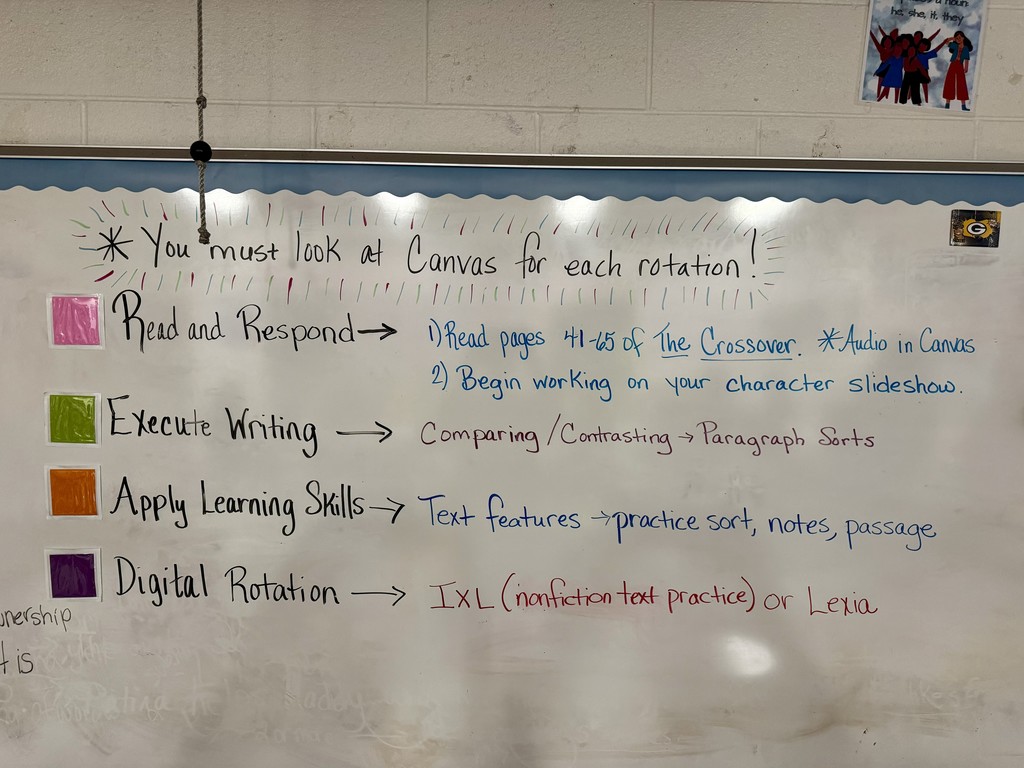 he, she, it, they
G
* You must look at Canvas for each rotation!
Read and Respond → 1) Read pages 41-65 of The Crossover. * Audio in Canvas
2) Begin working on your character slideshow.
Execute Writing → Comparing / Contrasting → Paragraph Sorts
Apply Learning Skills → Text features → practice sort, notes, passage
Digital Rotation → IXL (nonfiction text practice) or Lexia
t is